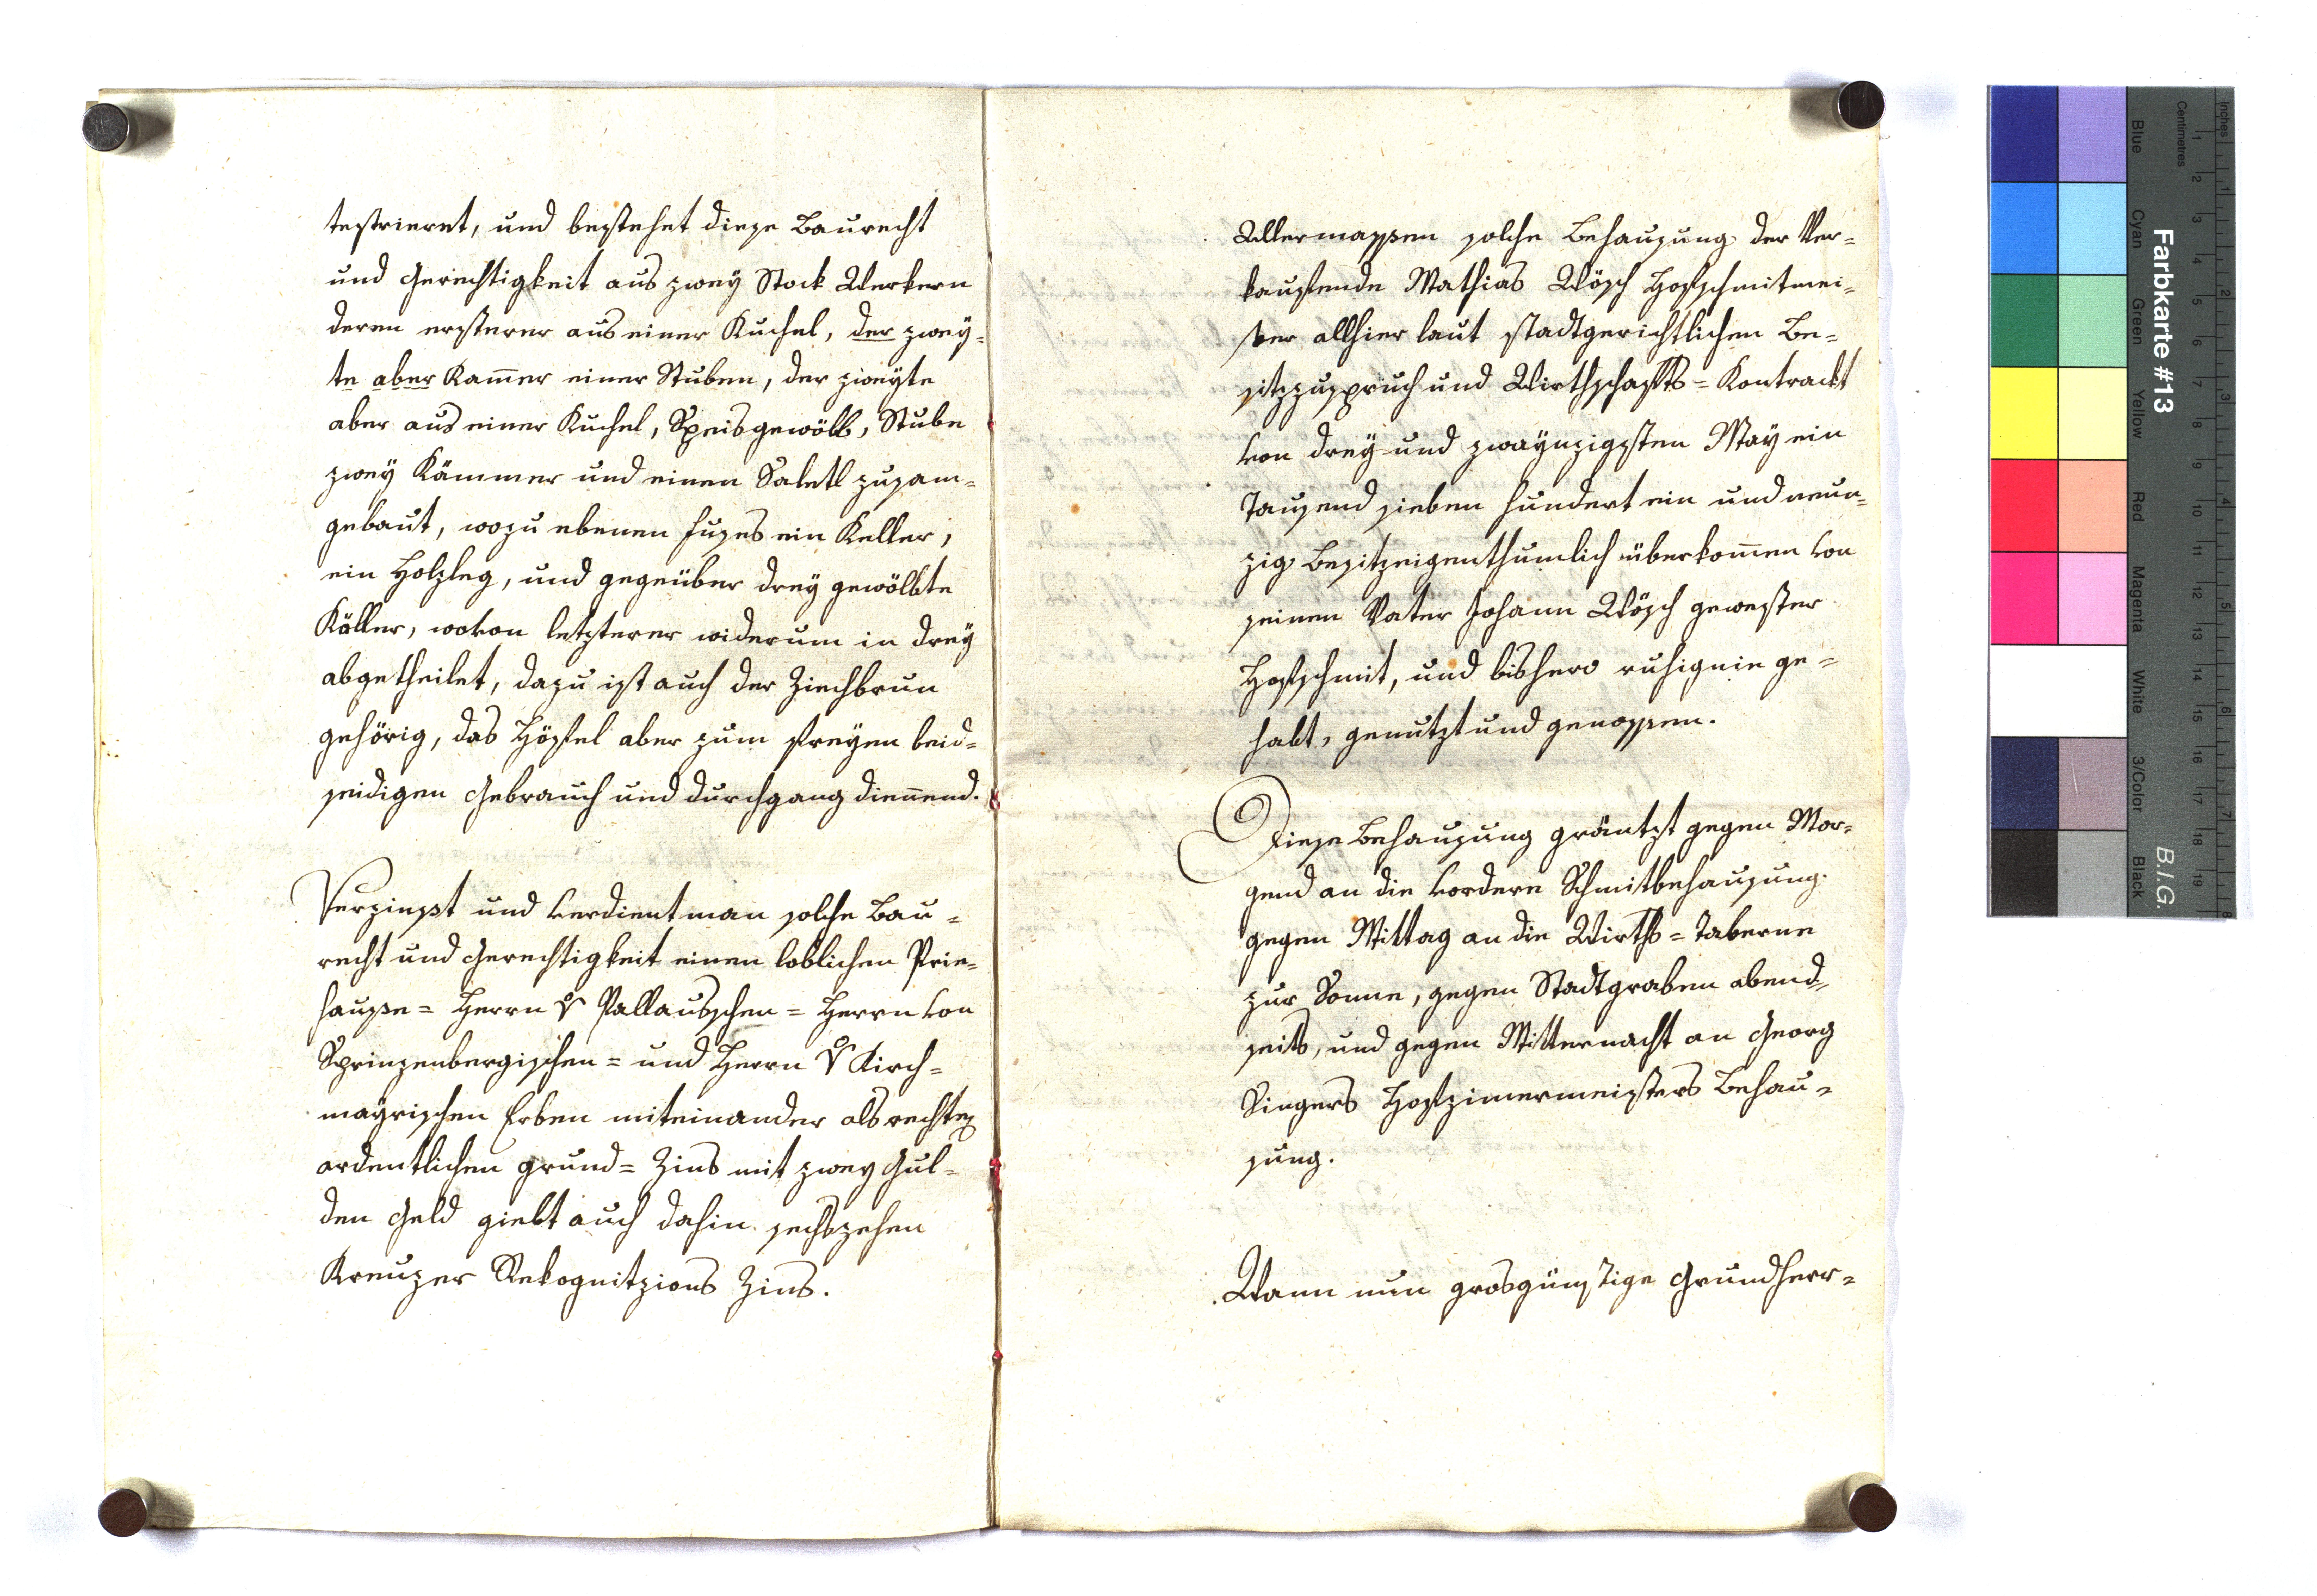 testrieret, und bestehet diese Baurecht
und Gerechtigkeit aus zweÿ Stock Werkern
deren ersterer aus einer Kuchel, der zweÿ=
te aber Kam̅er einer Stuben, der zweyte
aber aus einer Kuchel, Speisgewölb, Stube
zweÿ Kämmer und einen Saletl zusam=
gebaut, wozu ebenen Fuses ein Keller,
ein Holzleg, und gegeüber dreÿ gewölbte
Käller, wovon letzterer widerum in dreÿ
abgetheilet, dazu ist auch der Ziechbrun
gehörig, das Höffel aber zum freÿen beid=
seidigen Gebrauch und durchgang dienend.
Verzinßt und verdient man solche Bau=
recht und Gerechtigkeit einen loblichen Prie=
hauße= Herrn v Pallausschen= Herrn von
Sprinzenbergischen= und Herrn v Kirch=
maÿrischen Erben miteinander als rechten
ordentlichen grund= Zins mit zwey Gul=
den Geld giebt auch dahin sechszehen
Kreuzer Rekognitzions Zins.
Allermassen solche Behausung der Ver=
kauffende Mathias Wösch Hoffschmitmei=
ster allhier laut stadtgerichtlichen Be=
sitzzuspruch und Wirthschaffts= Kontrackt
von dreÿ und zwaÿnzigsten Maÿ ein
Tausend sieben hundert ein und neun=
zig Besitzeigenthumlich überkom̅en von
seinen Vater Johann Wösch gewester
Hoffschmit, und bishero ruhig inn ge=
habt, genutzt und genossen.
Diese Behausung gräntzt gegen Mor=
gend an die vordere Schmitbehausung.
gegen Mittag an die Wirths= Taberne
zur Sonne, gegen Stadtgraben abend=
seits, und gegen Mitternacht an Georg
Singers Hoffzimermeisters Behau=
sung.
Wann nun grosgünstige Grundherr=
Farbkarte #13
B.I.G.
Inches
Centimetres
1 2 3 4 5 6 7 8 9 10 11 12 13 14 15 16 17 18 19
1 2 3 4 5 6 7 8
Blue
Cyan
Green
Yellow
Red
Magenta
White
3/Color
Black